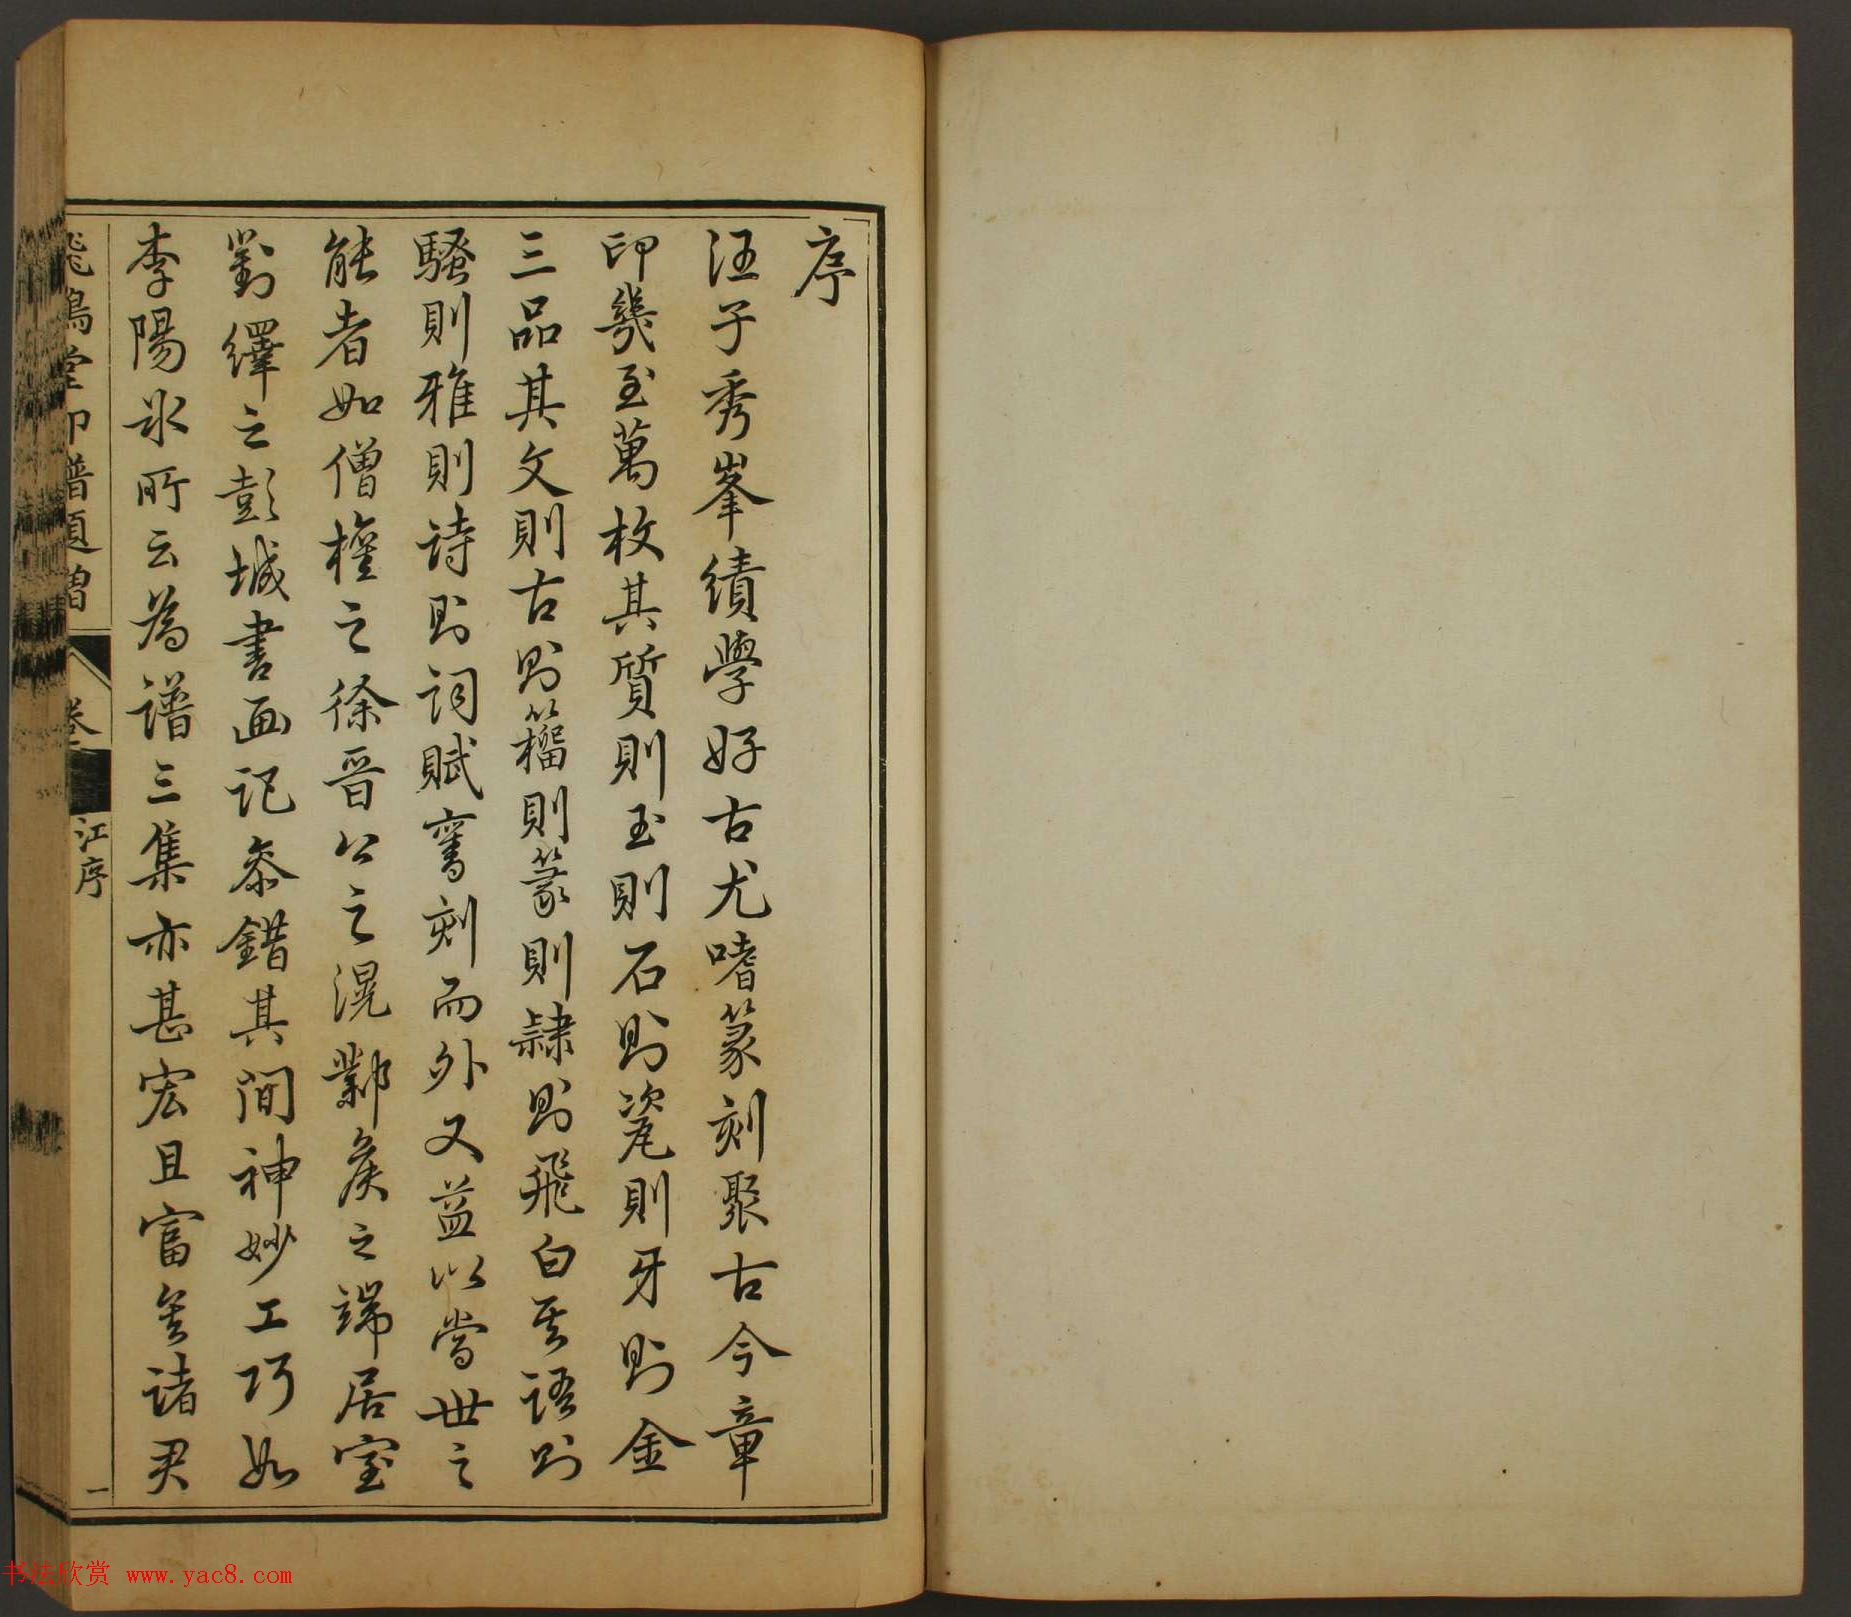 序
汪子秀峯績學好古尤嗜篆刻聚古今章
印幾至萬枚其質則玉則石則瓷則牙則金
三品其文則古則籀則篆則隷則飛白其語則
騷則雅則詩則詞賦舊刻而外又益以當世之
能者如僧權之徐晋公之滉酇矦之端居室
劉繹之彭城書画記叅錯其間神妙工巧如
李陽氷所云為譜三集亦甚宏且富矣諸君
飛鴻堂印譜題曽
卷
江序
一
书法欣赏 www.yac8.com